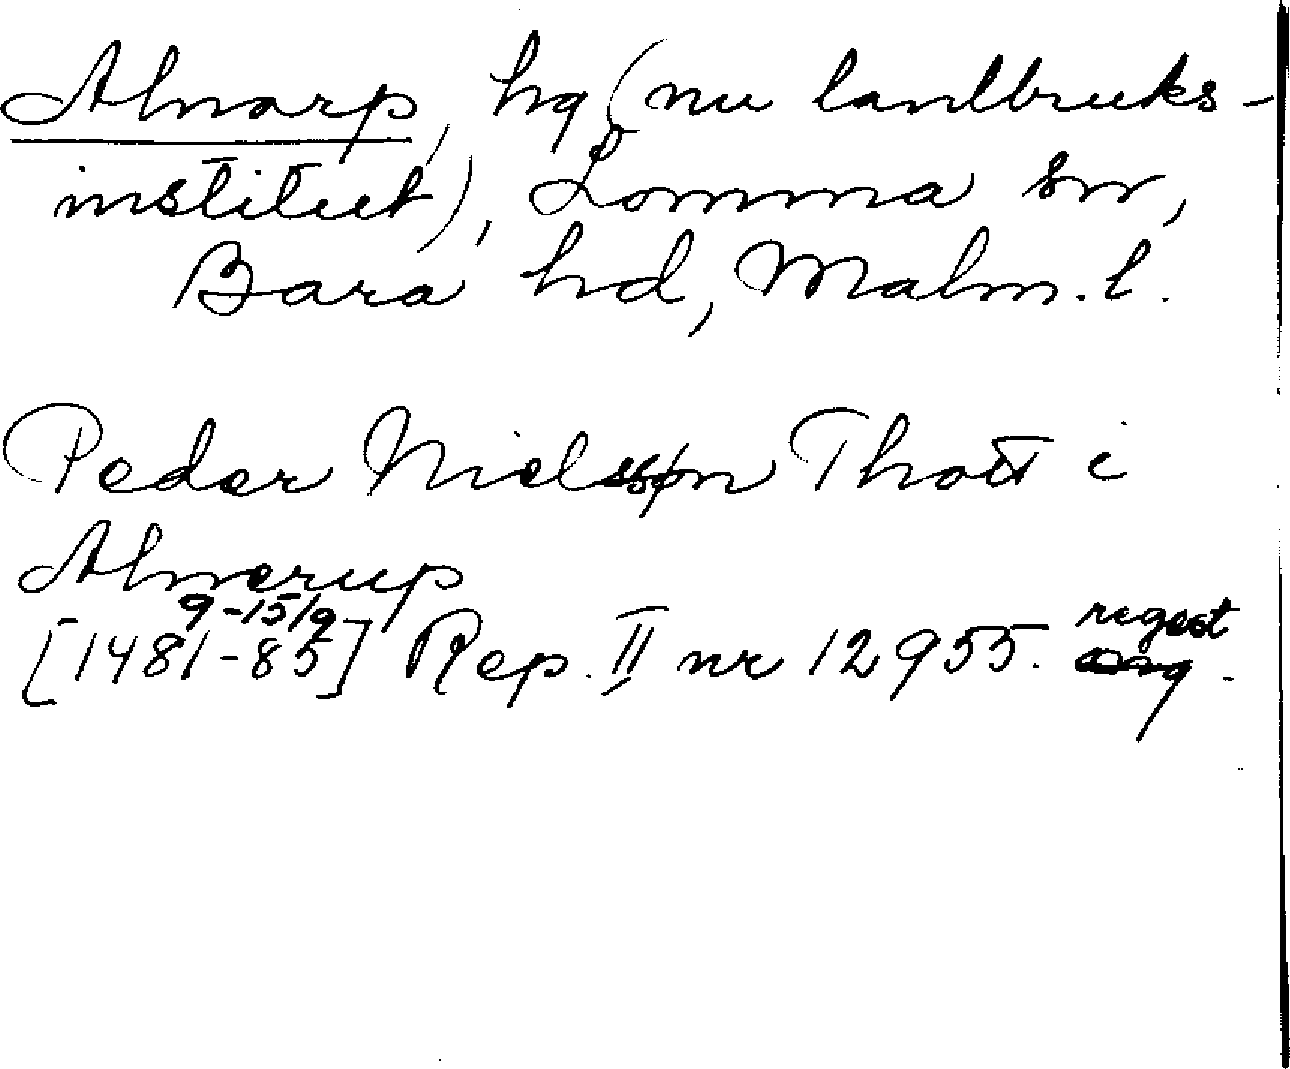 Alnarp, hg (nu landbruks-
institut), Lomma sn,
Bara hd, Malm. l.
Peder Nielssøn Thott i
Alnerup
9-15/9
[1481-85] Rep. II nr 12955. regest